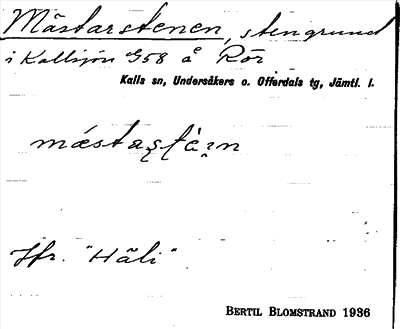 Mästarstenen, stengrund
i Kallsjön G58 å Rör
Kalls sn, Undersåkers o. Offerdals tg, Jämtl. l.
Jfr. "Häli"
BERTIL BLOMSTRAND 1936